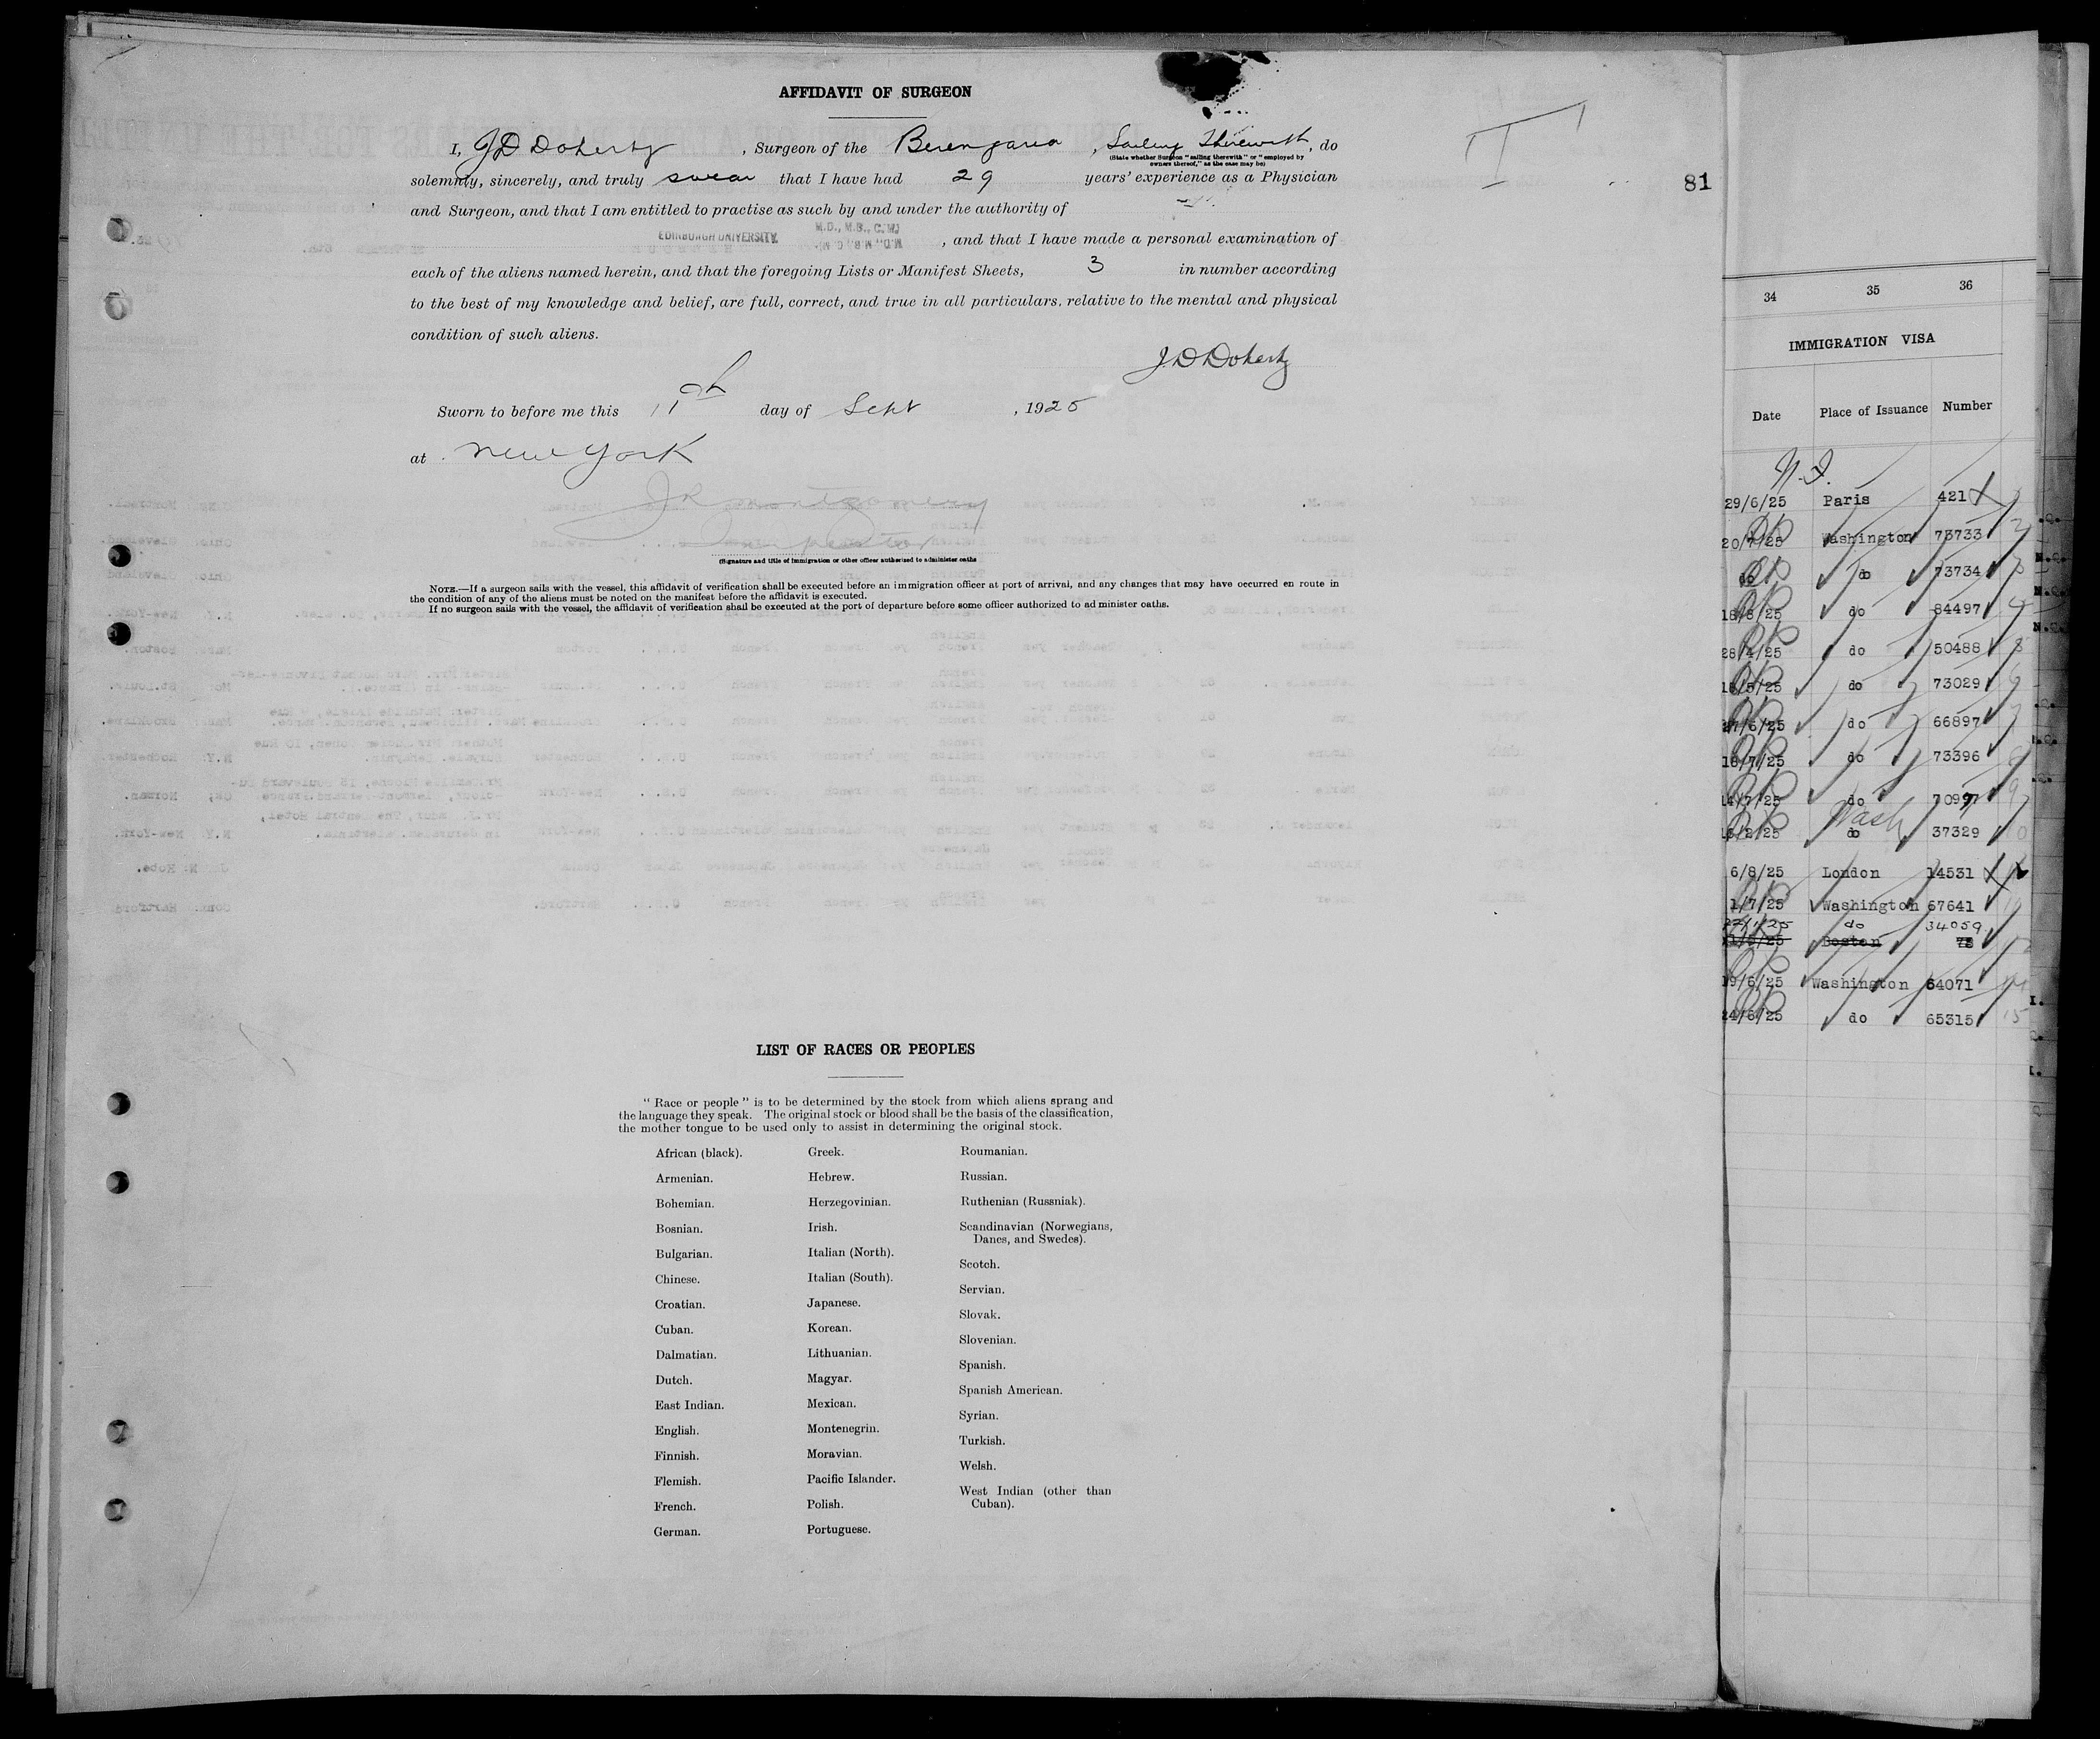 AFFIDAVIT OF SURGEON
I, J D Doherty, Surgeon of the Berengaria, Sailing Therewith, do
(State whether Surgeon "sailing therewith" or "employed by
owners thereof," as the case may be)
solemnly, sincerely, and truly swear that I have had 29 years' experience as a Physician
81
and Surgeon, and that I am entitled to practise as such by and under the authority of
EDINBURGH UNIVERSITY. M.D., M.B., C.M. , and that I have made a personal examination of
each of the aliens named herein, and that the foregoing Lists or Manifest Sheets, 3 in number according
to the best of my knowledge and belief, are full, correct, and true in all particulars, relative to the mental and physical
condition of such aliens.
J. D Doherty
Sworn to before me this 11th day of Sept , 1925
at New York
J R Montgomery
(Signature and title of immigration or other officer authorized to administer oaths
NOTE.—If a surgeon sails with the vessel, this affidavit of verification shall be executed before an immigration officer at port of arrival, and any changes that may have occurred en route in
the condition of any of the aliens must be noted on the manifest before the affidavit is executed.
If no surgeon sails with the vessel, the affidavit of verification shall be executed at the port of departure before some officer authorized to ad minister oaths.
LIST OF RACES OR PEOPLES
" Race or people " is to be determined by the stock from which aliens sprang and
the language they speak. The original stock or blood shall be the basis of the classification,
the mother tongue to be used only to assist in determining the original stock.
African (black).
Armenian.
Bohemian.
Bosnian.
Bulgarian.
Chinese.
Croatian.
Cuban.
Dalmatian.
Dutch.
East Indian.
English.
Finnish.
Flemish.
French.
German.
Greek.
Hebrew.
Herzegovinian.
Irish.
Italian (North).
Italian (South).
Japanese.
Korean.
Lithuanian.
Magyar.
Mexican.
Montenegrin.
Moravian.
Pacific Islander.
Polish.
Portuguese.
Roumanian.
Russian.
Ruthenian (Russniak).
Scandinavian (Norwegians,
Danes, and Swedes).
Scotch.
Servian.
Slovak.
Slovenian.
Spanish.
Spanish American.
Syrian.
Turkish.
Welsh.
West Indian (other than
Cuban).
34 35 36
IMMIGRATION VISA
Date Place of Issuance Number
29/6/25 Paris 421
20/7/25 Washington 73733 2
do do 73734 3
18/8/25 do 84497 4
28/4/25 do 50488 5
18/5/25 do 73029 6
27/6/25 do 66897 7
18/7/25 do 73396 8
14/7/25 do 70997 9
Wash
16/2/25 do 37329 10
6/8/25 London 14531
1/7/25 Washington 67641
do 34059
Boston 73
19/6/25 Washington 64071 14
24/6/25 do 65315 15